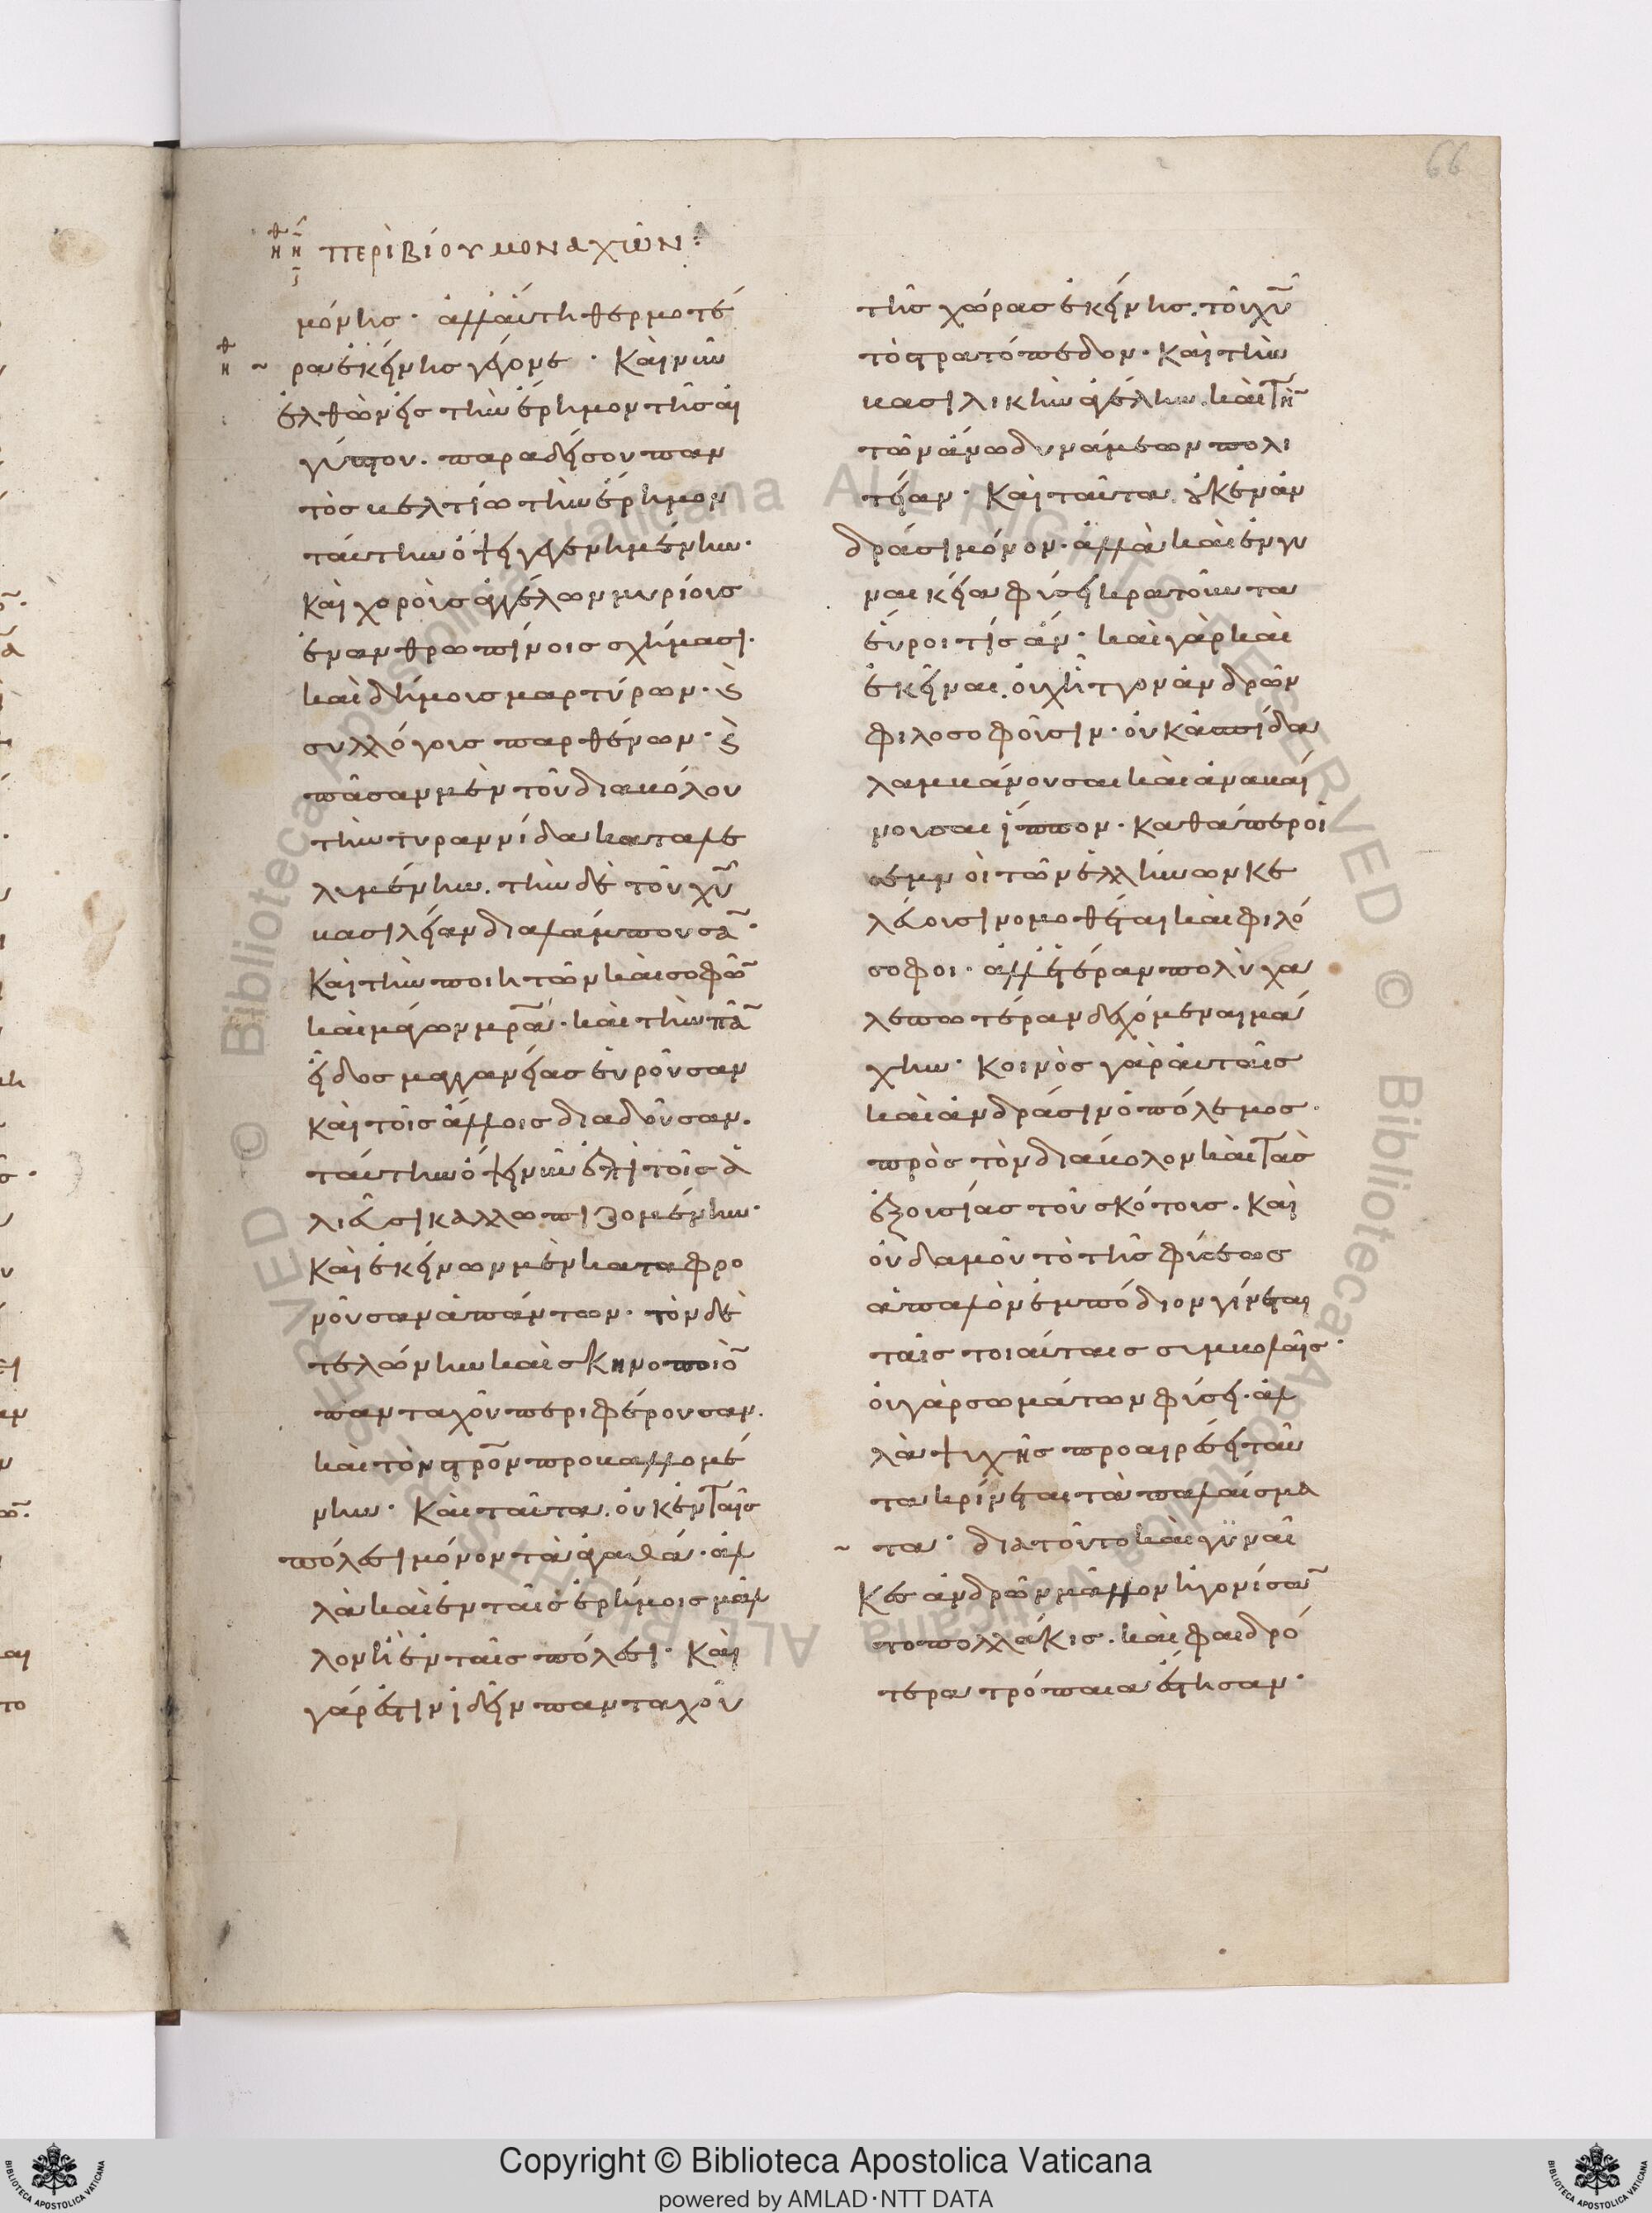 66
περὶ βίου μοναχῶν:
μένης· ἀλλ' αὕτη θερμοτέ
ρα ἐκείνης γέγονε· Καὶ νῦν
ἐλθὼν εἰς τὴν ἔρημον τῆς αἰ
γύπτου. παραδείσου παν
τὸς βελτίω τὴν ἔρημον
ταύτην ὄψει γεγενημένην·
Καὶ χοροὺς ἀγγέλων μυρίους
ἐν ἀνθρωπίνοις σχήμασι·
καὶ δήμους μαρτύρων· ϗ
συλλόγους παρθένων· ϗ
πᾶσαν μὲν τοῦ διαβόλου
τὴν τυραννίδα καταλε
λυμένην. τὴν δὲ τοῦ χυ
βασιλείαν διαλάμπουσα̅·
Καὶ τὴν ποιητῶν καὶ σοφῶ̅
καὶ μάγων μρ̅α· καὶ τὴν πᾶ̅
εἶδος μαγγανείας εὑροῦσαν
καὶ τοῖς ἄλλοις διαδοῦσαν.
ταύτην ὄψει νῦν ἐπὶ τοῖς ἁ
λιεῦσι καλλωπιζομένην·
Καὶ ἐκείνων μὲν καταφρο
νοῦσαν ἁπάντων· τὸν δὲ
τελώνην καὶ σκηνοποιὸ̅
πανταχοῦ περιφέρουσαν.
καὶ τὸν στρον προβαλλομέ
νην· Καὶ ταῦτα. οὐκ ἐν ταῖς
πόλεσι μόνον τὰ ἀγαθά· ἀλ
λὰ καὶ ἐν ταῖς ἐρήμοις μᾶλ
λον ἢ ἐν ταῖς πόλεσι· Καὶ
γάρ ἐστιν ἰδεῖν πανταχοῦ
τῆς χώρας ἐκείνης. τοῦ χυ
τὸ στρατόπεδον· Καὶ τὴν
βασιλικὴν ἀγέλην. καὶ τὴ̅
τῶν ἄνω δυνάμεων πολι
τείαν· Καὶ ταῦτα. οὐκ ἐν ἀν
δράσι μόνον· ἀλλὰ καὶ ἐν γυ
ναικεία φύσει κρατοῦντα
εὕροι τίς ἄν· καὶ γὰρ καὶ
ἐκεῖναι. οὐχ ἧττον ἀνδρῶν
φιλοσοφοῦσιν· οὐκ ἀσπίδα
λαμβάνουσαι καὶ ἀναβαί
νουσαι ἵππον· Καθάπερ οἱ
σεμνοὶ τῶν ἑλλήνων κε
λεύουσι νομοθέται καὶ φιλό
σοφοι· ἀλλ' ἑτέραν πολὺ χα
λεπωτέραν δεχόμεναι μά
χην· Κοινὸς γὰρ αὐταῖς
καὶ ἀνδράσιν ὁ πόλεμος·
πρὸς τὸν διάβολον καὶ τὰς
ἐξουσίας τοῦ σκότους. Καὶ
οὐδαμοῦ τὸ τῆς φύσεως
ἁπαλὸν ἐμπόδιον γίνεται
ταῖς τοιαύταις συμβολαῖς·
οὐ γὰρ σωμάτων φύσει· ἀλ
λὰ ψυχῆς προαιρέσει ταῦ
τα κρίνεται τὰ παλαίσμα
τα· διὰ τοῦτο καὶ γυναῖ
κες ἀνδρῶν μᾶλλον ἠγονίσα̅
το πολλάκις. καὶ φαιδρό
τερα τρόπαια ἔστησαν·
Copyright © Biblioteca Apostolica Vaticana
powered by AMLAD·NTT DATA